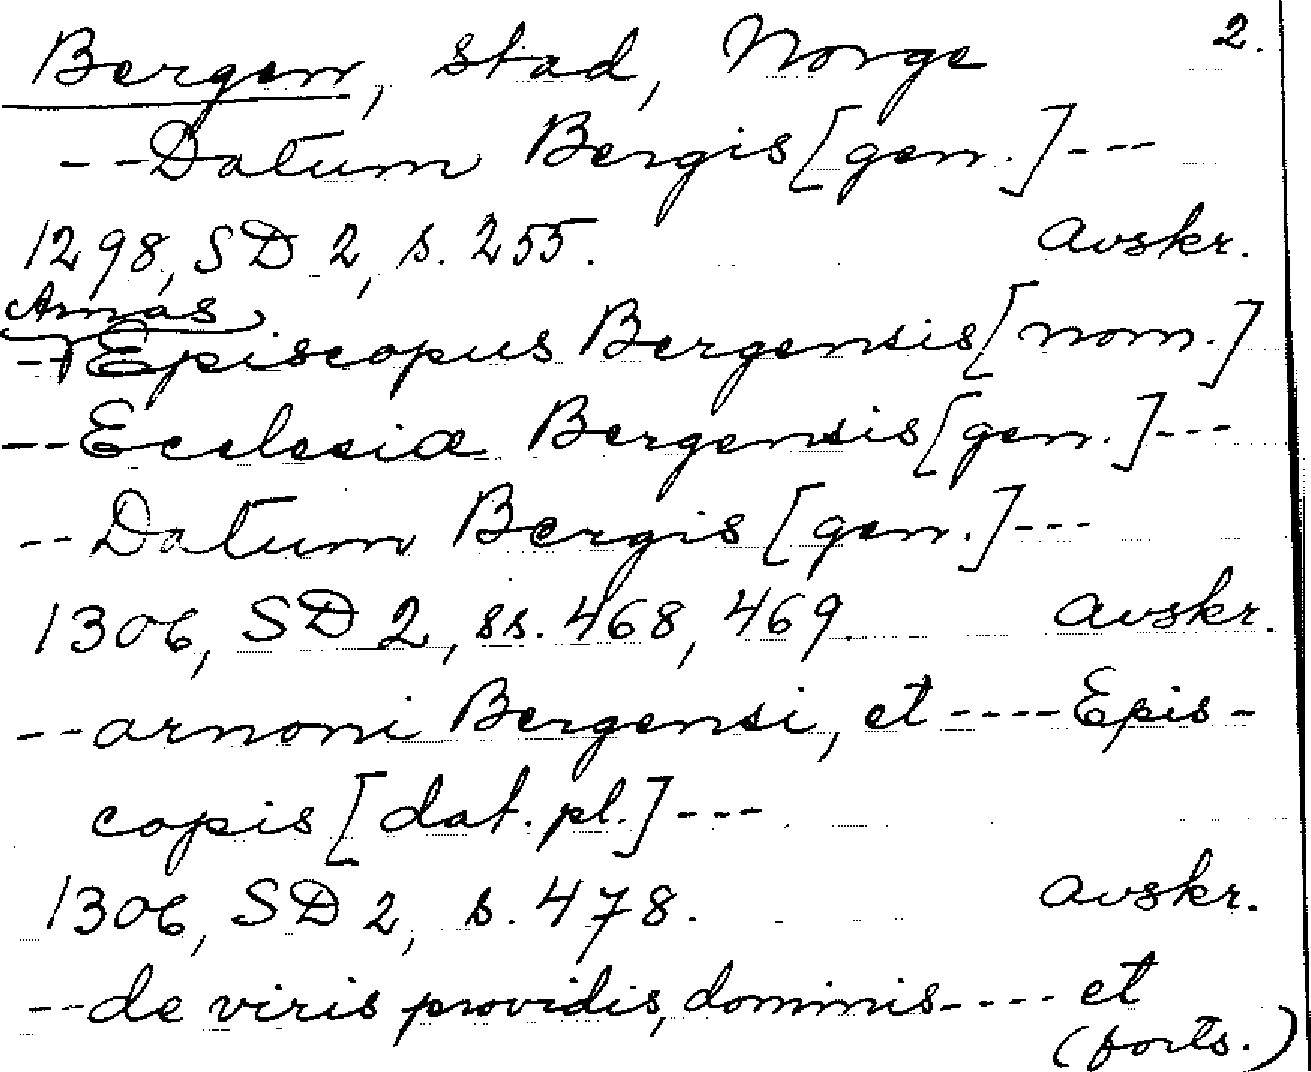 Bergen, stad, Norge 2.
--Datum Bergis [gen.]---
1298, SD 2, s. 255. avskr.
Arnas
--Episcopus Bergensis [nom.]
--Ecclesiæ Bergensis [gen.]---
--Datum Bergis [gen.]---
1306, SD 2, ss. 468, 469. avskr.
--arnoni Bergensi, et ----Epis-
copis [dat. pl.]---
1306, SD 2, s. 478. avskr.
--de viris providis, dominis---- et
(forts.)